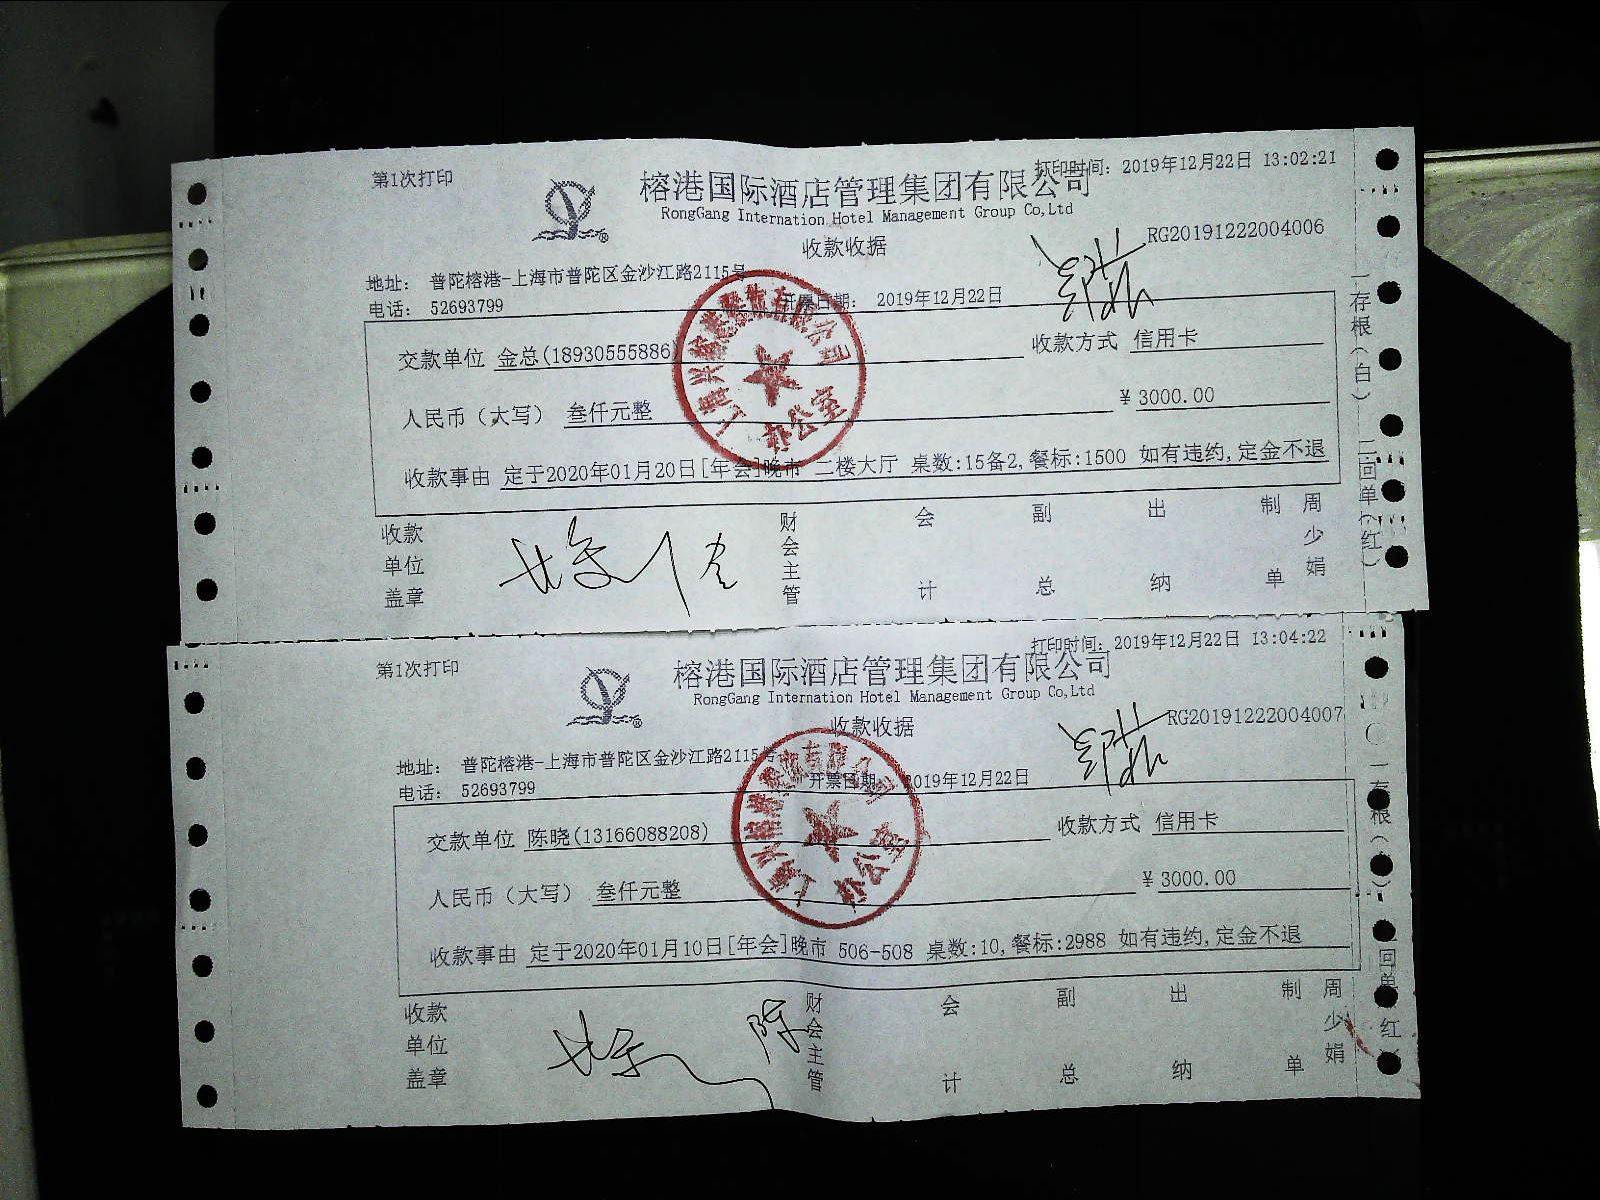 第1次打印
打印时间：2019年12月22日 13:02:21
榕港国际酒店管理集团有限公司
RongGang Internation Hotel Management Group Co,Ltd
收款收据
RG20191222004006
地址： 普陀榕港-上海市普陀区金沙江路2115号
电话： 52693799
开票日期： 2019年12月22日
交款单位 金总(18930555886)
收款方式 信用卡
人民币（大写） 叁仟元整
¥ 3000.00
收款事由 定于2020年01月20日[年会]晚市 二楼大厅 桌数:15备2,餐标:1500 如有违约,定金不退
收款单位盖章
财会主管
会计
副总
出纳
制单
周少娟
一存根（白） 二回单（红）
办公室
第1次打印
打印时间：2019年12月22日 13:04:22
榕港国际酒店管理集团有限公司
RongGang Internation Hotel Management Group Co,Ltd
收款收据
RG20191222004007
地址： 普陀榕港-上海市普陀区金沙江路2115号
电话： 52693799
开票日期： 2019年12月22日
交款单位 陈晓(13166088208)
收款方式 信用卡
人民币（大写） 叁仟元整
¥ 3000.00
收款事由 定于2020年01月10日[年会]晚市 506-508 桌数:10,餐标:2988 如有违约,定金不退
收款单位盖章
财会主管
会计
副总
出纳
制单
周少娟
办公室